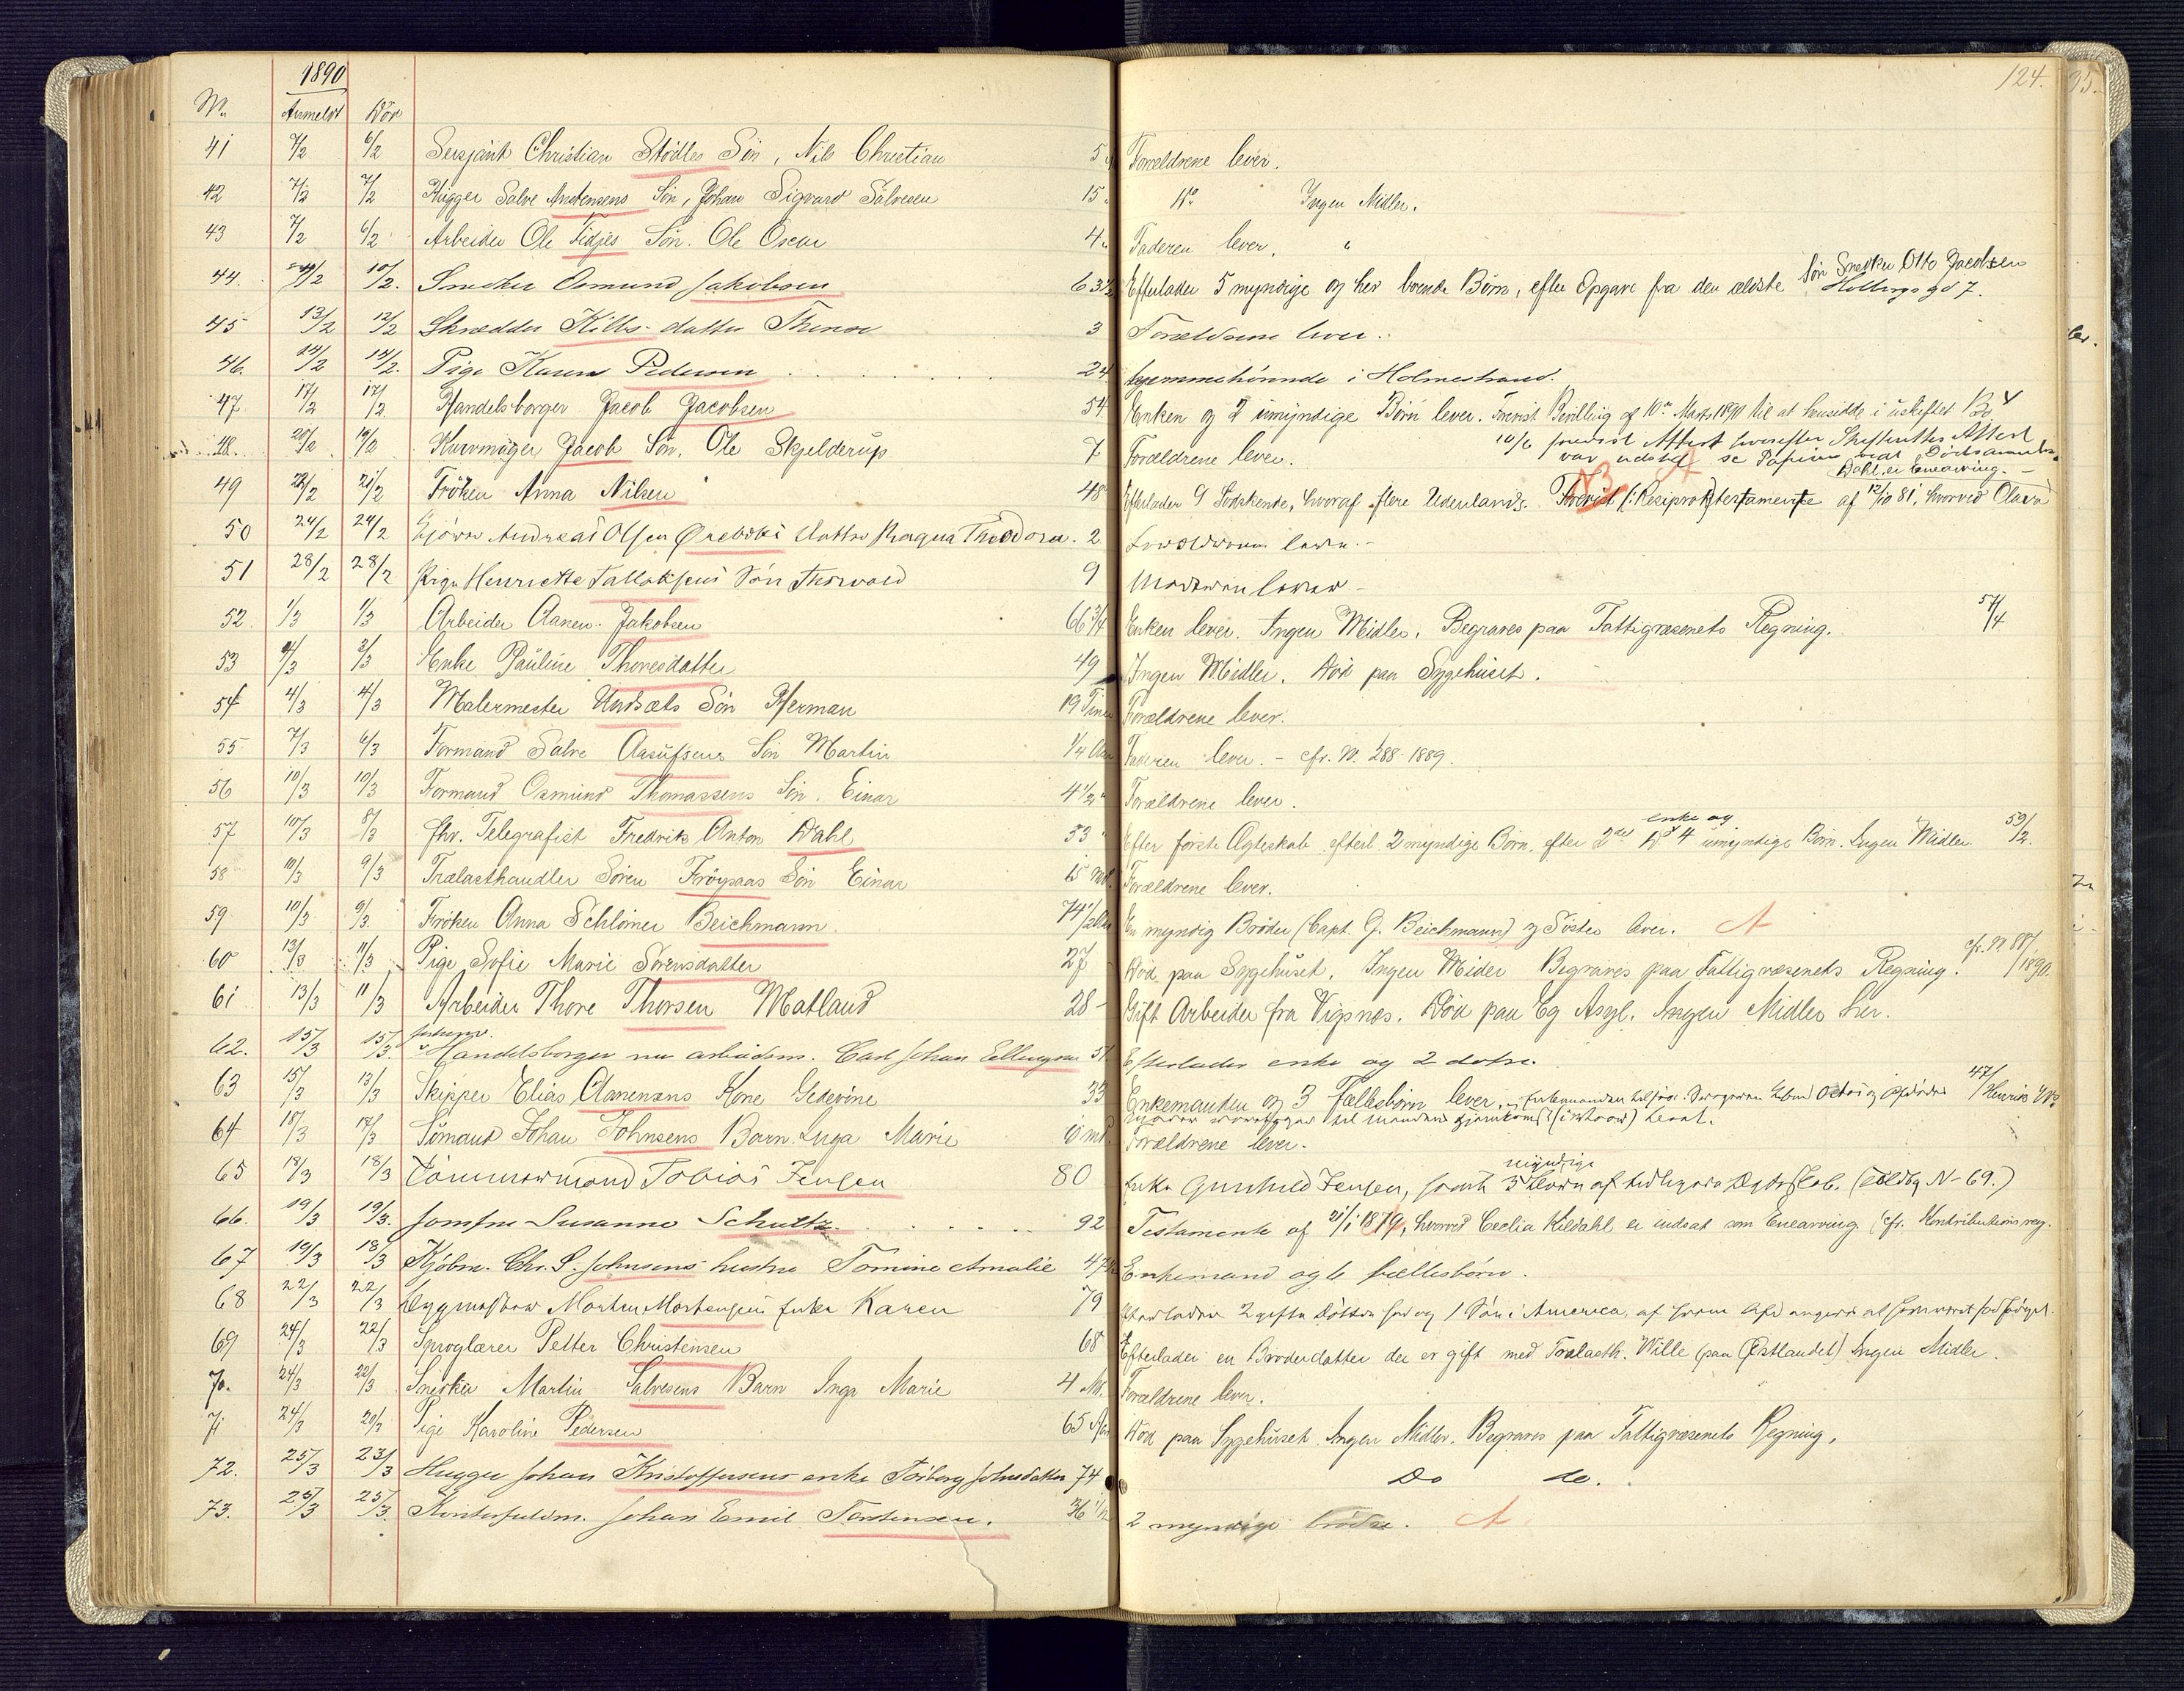 1890
124.
No. Anmeldt Död
41 7/2 6/2 Sersjant Christian Stödles Sön, Nils Christian 5 Forældrene lever.
42 7/2 7/2 Rigger Salve Andersens Sön, Johan Sigvard Salvesen 15 Do Ingen Midler.
43 7/2 6/2 Arbeider Ole Fidjes Sön. Ole Oscar 4 Faderen lever. "
44. 10/2. Snedker Osmund Jakobsen 63 1/2 Efterlader 5 myndige og her boende Börn, efter Opgave fra den ældste Sön Snedker Otto Jacobsen
Holbergs gd 7.
45 13/2 12/2 Skrædder datter 3 Forældrene lever.
46. 14/2 14/2. Pige Karen Pedersen 24 hjemmehörende i Holmestrand.
47 17/2 17/2 Handelsborger Jacob Jacobsen 54 Enken og 2 umyndige Börn lever. Forevist Bevilling af 10de Marts 1890 til at hensidde i uskiftet Bo
48. 20/2 19/2 Kurvmager Jacob Sön. Ole Skjelderup 7 Forældrene lever. 10/6 forevist Attest hvorefter Skifterettens Attest
var udstedt se Papirer ved Dödsanm.
49 22/2 21/2 Fröken Anna Nilsen 48 Efterlader 9 Södskende, hvoraf flere Udenlands. Forevist (: Resiprok) testamente af 12/10 81, hvorved Olava
Dahl er Enearving.
50 24/2 24/2 Andreas Olsen Datter Ragna Theodora. 2 Forældrene lever.
51 28/2 28/2 Pige Henriette Tallaksens Sön Thorvald 9 Moderen lever
52. 1/3 1/3 Arbeider Aanen Jakobsen 66 3/4 Enken lever. Ingen Midler. Begraves paa Fattigvæsenets Regning. 57/4
53 4/3 2/3 Enke Pauline Thoresdatter 49 Ingen Midler. Död paa Sygehuset.
54 4/3 4/3 Malermester Undsets Sön Herman 19 Timer Forældrene lever.
55 7/3 6/3 Formand Salve Aasulfsens Sön Martin 1/4 Aar Faderen lever. - cfr. N. 288-1889.
56 10/3 10/3 Formand Osmund Thomassens Sön. Einar 4 1/2 Forældrene lever.
57 10/3 8/3 fhv. Telegrafist Fredrik Anton Dahl 53 Efter förste Ægteskab efterl. 2 myndige Börn, efter 2det Do enke og 4 umyndige Börn. Ingen Midler 59/2.
58 10/3 9/3 Trælasthandler Sören Fröysaas Sön Einar 15 Md. Forældrene lever.
59 10/3 9/3. Fröken Anna Schlömer Beichmann. 74 1/2 Aar En myndig Broder (Capt. G. Beichmann) og Söster lever. A
60 13/3 11/3 Pige Sofie Marie Sörensdatter 27 Död paa Sygehuset. Ingen Midler Begraves paa Fattigvæsenets Regning. cfr. N 88/1890.
61 13/3 11/3 Arbeider Thore Thorsen Matland 28 - Gift Arbeider fra Vigsnæs. Död paa Eg Asyl. Ingen Midler her.
62. 15/3 15/3. forhenv. Handelsborger nu arbeidsm. Carl Johan Ellingsen 51 Efterlader enke og 2 dötre.
63 15/3 13/3 Skipper Elias Aanensens Kone Gedevine 33 Enkemanden og 3 Fællesbörn lever. 47/
til Mandens hjemkomst
64 18/3 17/3 Sömand Johan Johnsens Barn Inga Marie md. Forældrene lever.
65 18/3 18/3 Tömmermand Tobias Jensen 80 Enke Gunhild Jensen, samt 3 myndige Börn af tidligere Ægteskab. N-69.)
66. 19/3 19/3. Jomfru Susanne Schultz. 92 Testamente af 21/1 1879, hvorved Cecilia Kildahl er indsat som Enearving. (cfr. Kontributionsreg.
67 19/3 18/3 Kjöbm. Chr. S. Johnsens hustru Tomine Amalie 47 Enkemand og 6 fællesbörn.
68 22/3 22/3 Bygmester Morten Mortensens Enke Karen 79 Efterlader 2 gifte Döttre her og 1 Sön i America,
69 24/3 22/3 Sproglærer Petter Christensen 68 Efterlader en Broderdatter der er gift med Trælasth. Wille (paa Østlandet) Ingen Midler.
70. 24/3 22/3 Snedker Martin Salvesens Barn Inga Marie 4 M. Forældrene lever.
71 24/3 20/3 Pige Karoline Pedersen 65 Aar Död paa Sygehuset. Ingen Midler. Begraves paa Fattigvæsenets Regning.
72. 25/3 23/3 Johan Kristoffersens enke Torborg Johnsdatter 74 Do do.
73. 25/3 25/3. Kontorfuldm. Johan Emil Torstensen. 36 1/2 2 myndige brödre. A